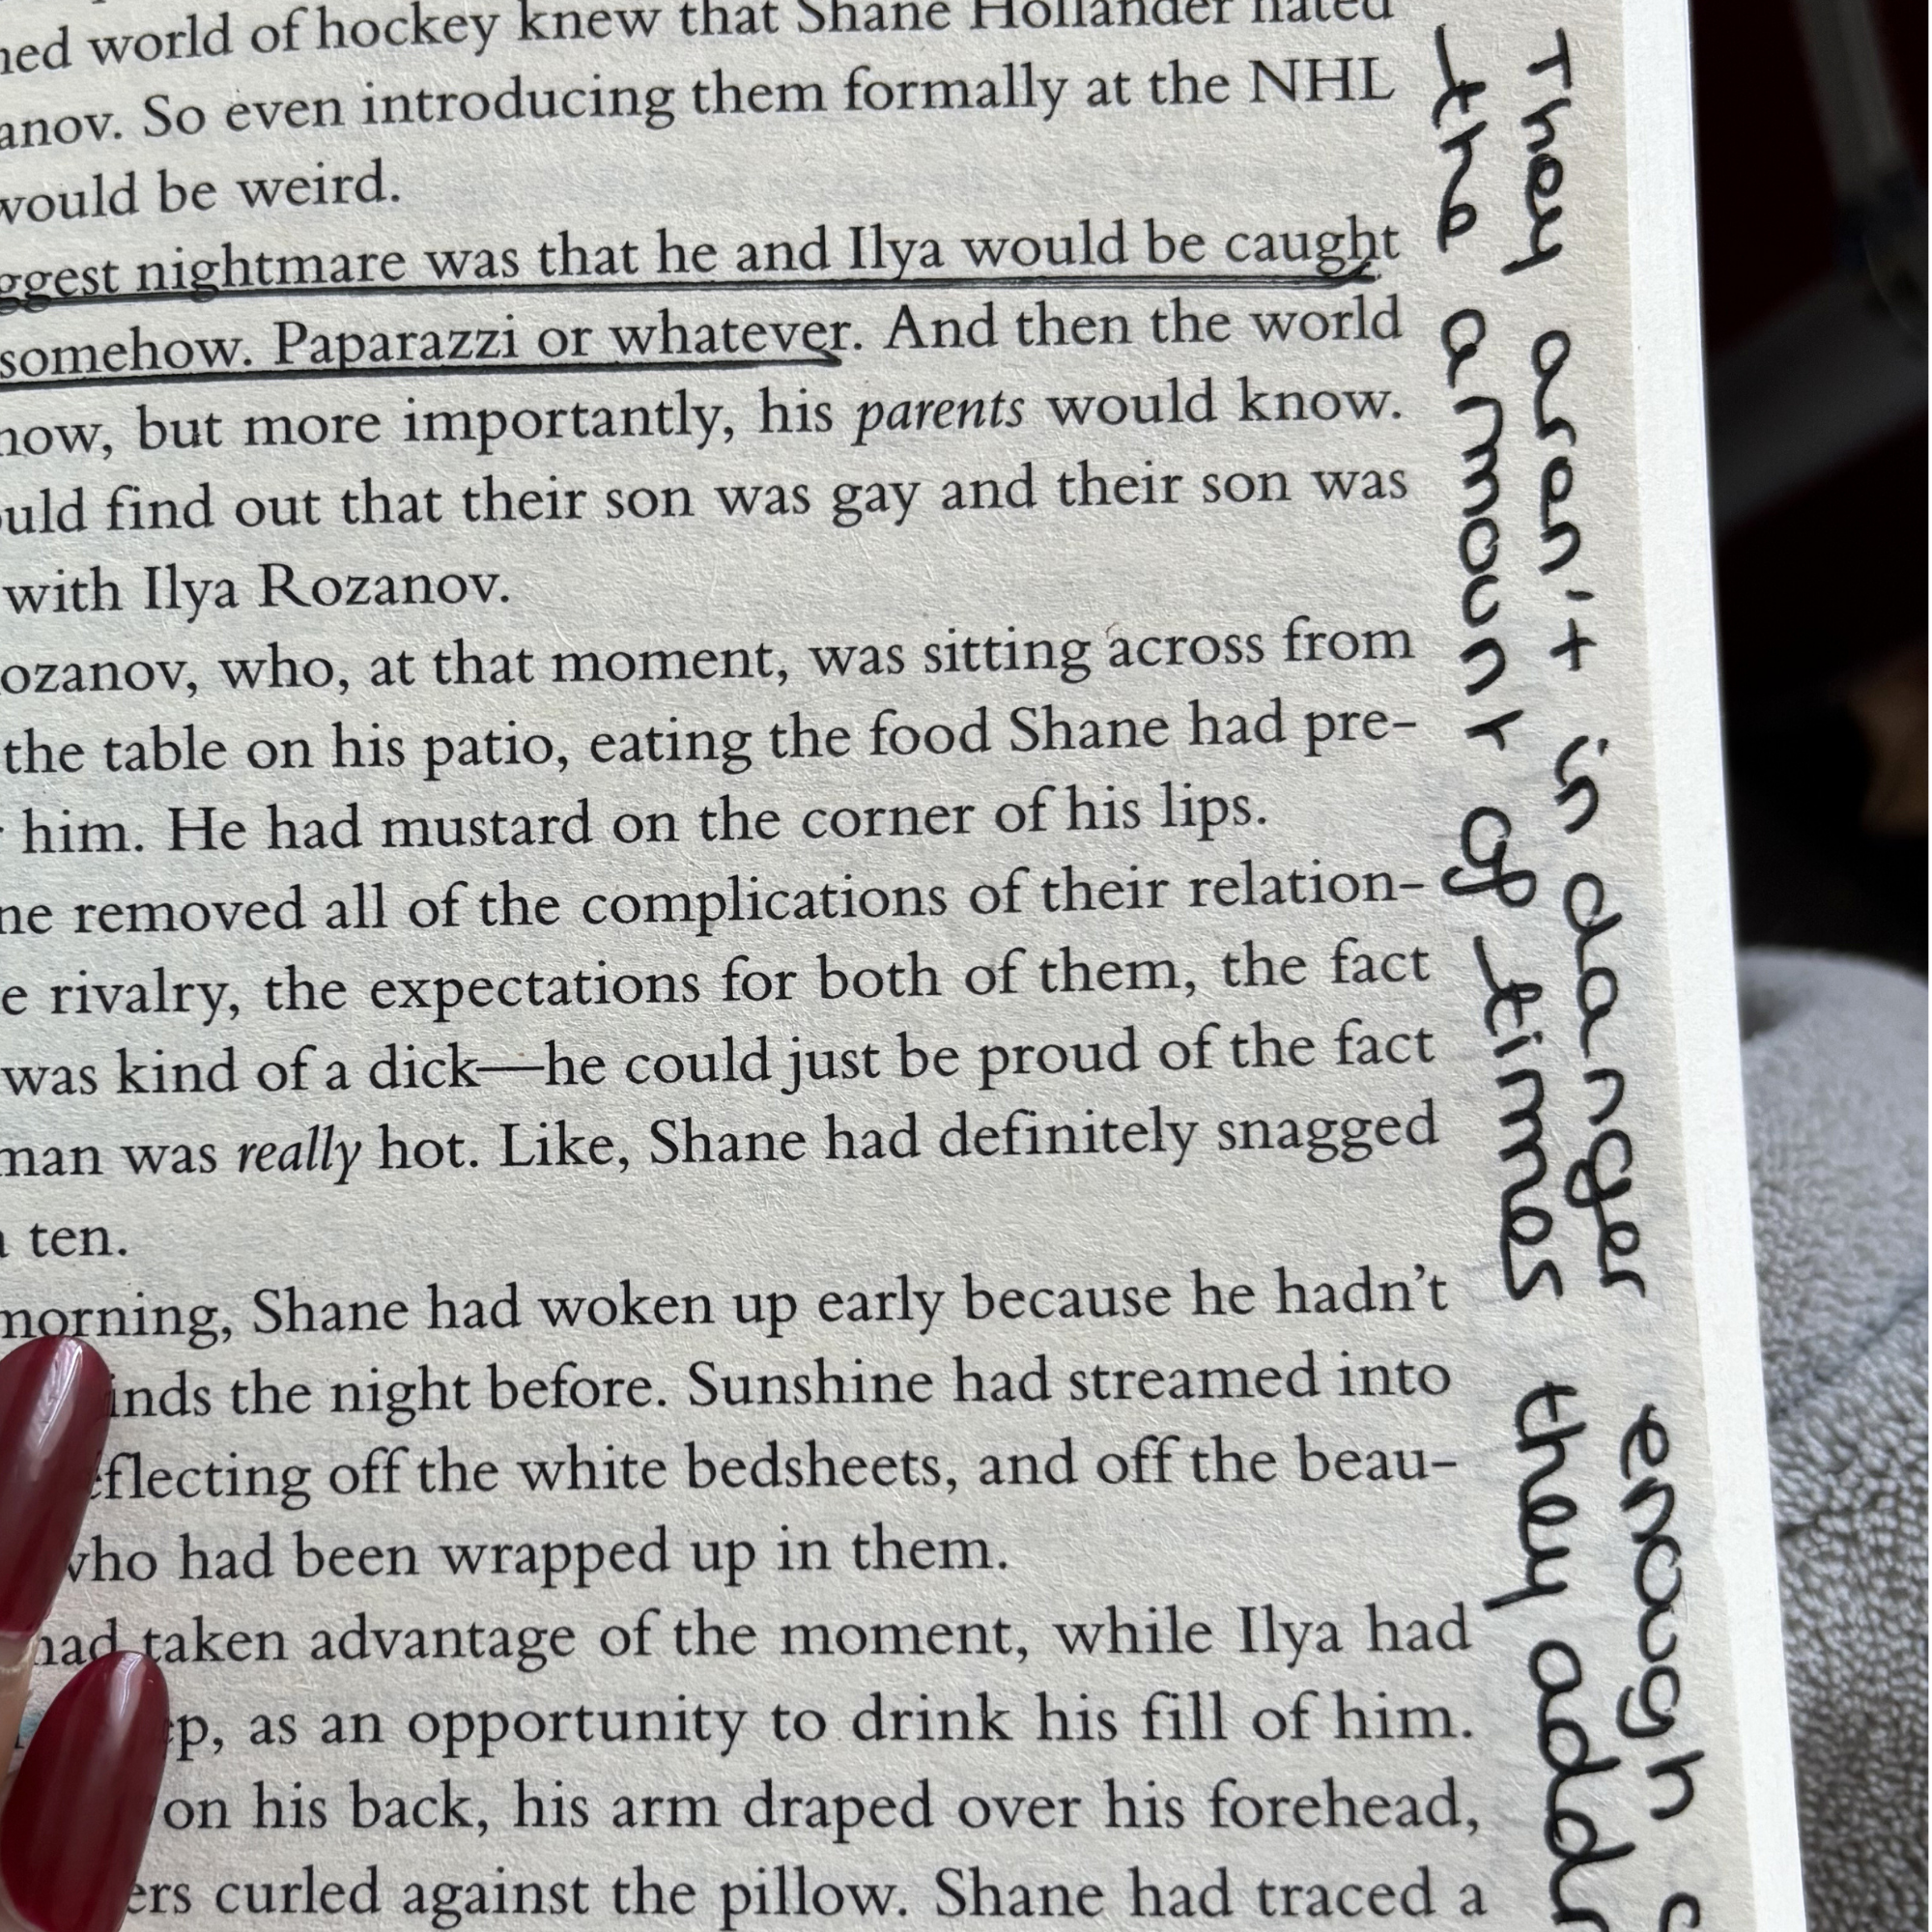 world of hockey knew that Shane Hollander hated
anov. So even introducing them formally at the NHL
would be weird.
ggest nightmare was that he and Ilya would be caught
somehow. Paparazzi or whatever. And then the world
now, but more importantly, his parents would know.
ould find out that their son was gay and their son was
with Ilya Rozanov.
ozanov, who, at that moment, was sitting across from
the table on his patio, eating the food Shane had pre-
him. He had mustard on the corner of his lips.
ne removed all of the complications of their relation-
e rivalry, the expectations for both of them, the fact
was kind of a dick—he could just be proud of the fact
man was really hot. Like, Shane had definitely snagged
ten.
morning, Shane had woken up early because he hadn't
inds the night before. Sunshine had streamed into
flecting off the white bedsheets, and off the beau-
who had been wrapped up in them.
had taken advantage of the moment, while Ilya had
ep, as an opportunity to drink his fill of him.
on his back, his arm draped over his forehead,
ers curled against the pillow. Shane had traced a
They aren't in danger enough
the amount of times they addr